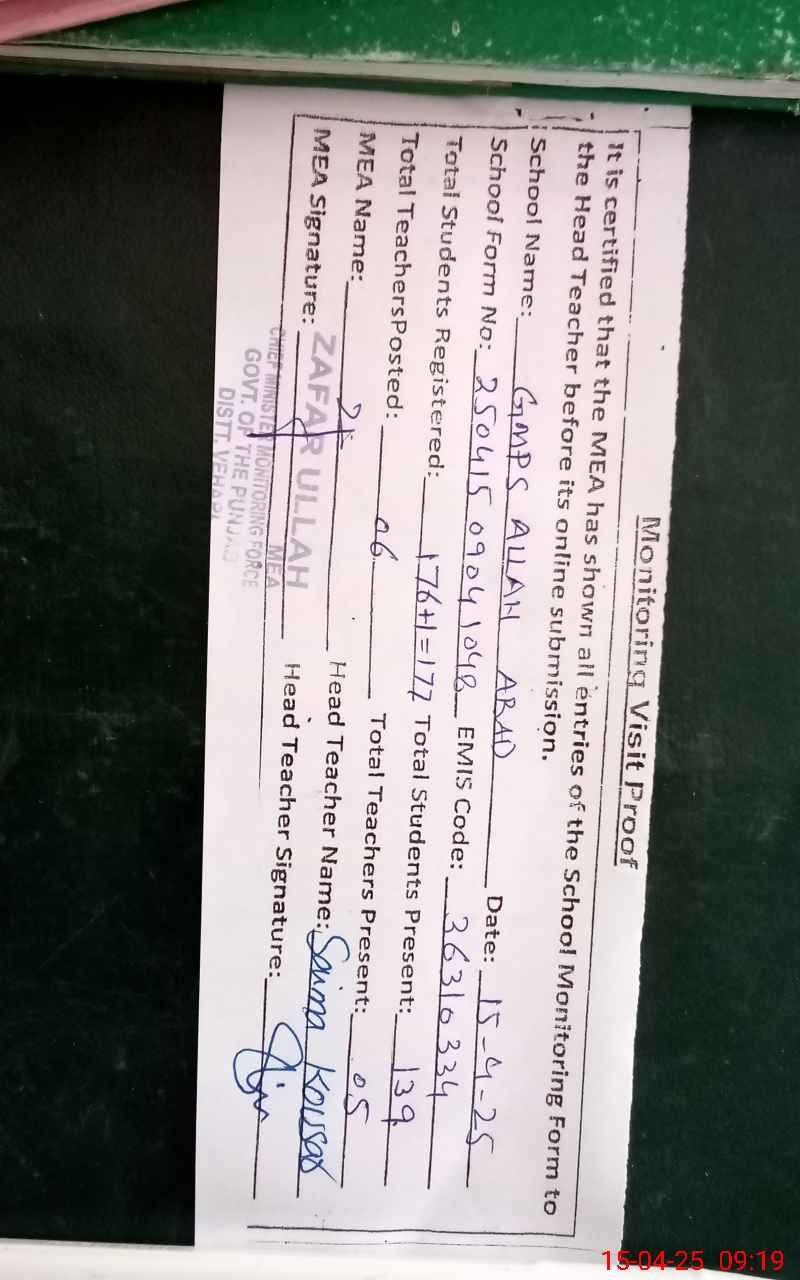 Monitoring Visit Proof
It is certified that the MEA has shown all entries of the School Monitoring Form to
the Head Teacher before its online submission.
School Name: GMPS ALLAH ABAD Date: 15-4-25
School Form No: 250415 09041048 EMIS Code: 36310334
Total Students Registered: 176+1=177 Total Students Present: 139
Total TeachersPosted: 06 Total Teachers Present: 05
MEA Name: Head Teacher Name: Saima Kousar
MEA Signature: Head Teacher Signature:
ZAFAR ULLAH
MEA
CHIEF MINISTER MONITORING FORCE
GOVT. OF THE PUNJAB
DISTT. VEHARI
15-04-25 09:19